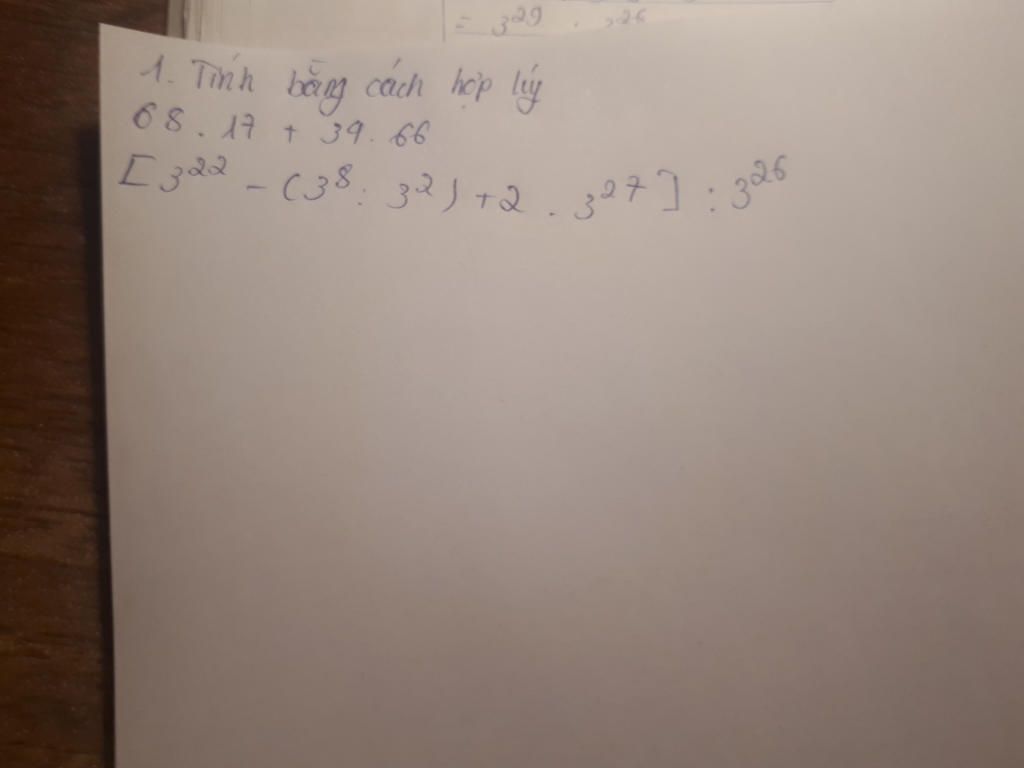 = 3²⁹ . 3²⁶
1. Tính bằng cách hợp líy
68 . 17 + 39 . 66
[3²² - (3⁸ : 3²) + 2 . 3²⁷] : 3²⁶